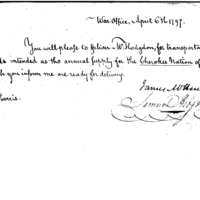 War Office, April 6th 1797.
You will please to deliver Mr. Hodgdon, for transportat
ds intended as the annual supply for the Cherokee Nation of
h you inform me are ready for delivery.
James McHen
Samuel Hodg
Harris.